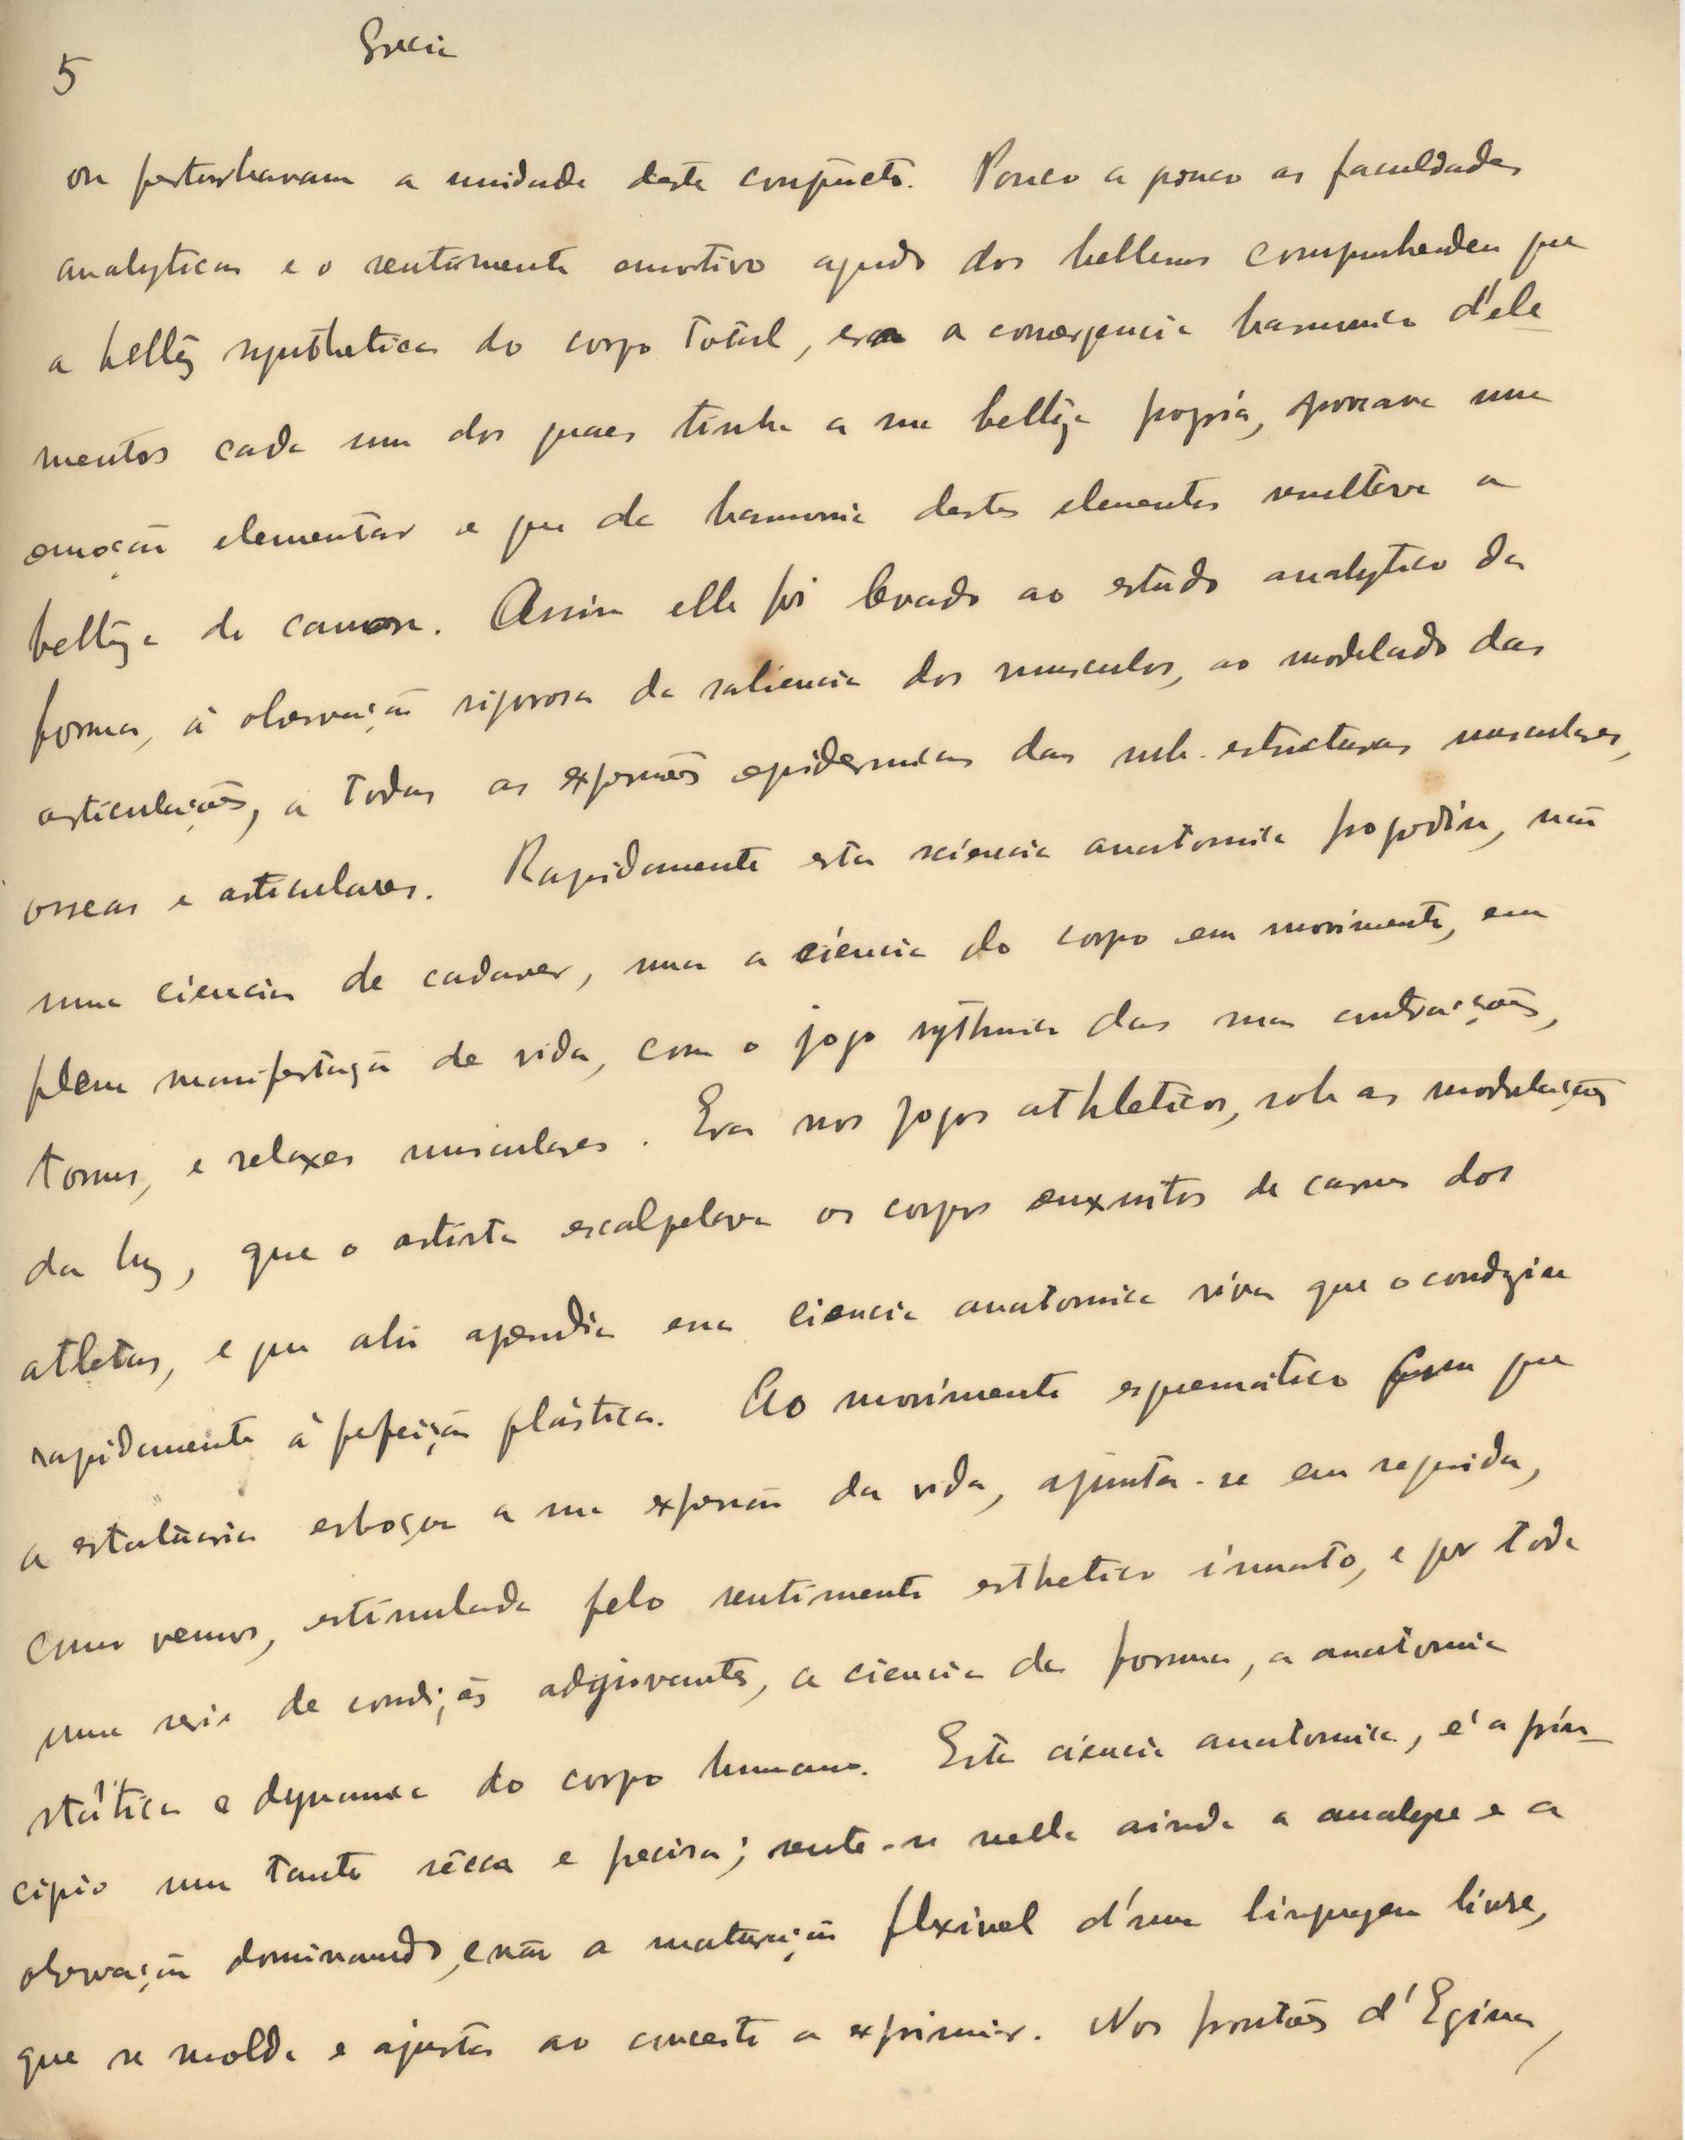 5 Grecia
ou perturbavam a unidade deste conjuncto. Pouco a pouco as faculdades
analyticas e o sentimento emotivo agudo dos hellenos comprehendeu que
a belleza synthetica do corpo total, era a convergencia harmonica d'ele
mentos cada um dos quaes tinha a sua belleza propria, provocava uma
emoção elementar e que da harmonia destes elementos resultava a
belleza do canon. Assim elle foi levado ao estudo analytico da
forma, á observação rigorosa da saliencia dos musculos, ao modelado das
articulações, a todas as expressões epidermicas das sub-estructuras musculares,
osseas e articulares. Rapidamente esta sciencia anatomica progrediu, não
uma ciencia de cadaver, mas a ciencia do corpo em movimento, em
plena manifestação de vida, com o jogo rythmico das suas contracções,
tonus, e relaxes musculares. Era nos jogos athleticos, sob as modulações
da luz, que o artista escalpelava os corpos enxutos de carnes dos
atletas, e que ahi aprendia essa ciencia anatomica viva que o conduziu
rapidamente á perfeição plástica. Ao movimento esquematico com que
a estatuaria esboçou a sua expressão da vida, ajunta-se em seguida,
como vemos, estimulada pelo sentimento esthetico innato, e por toda
uma serie de condições adjuvantes, a ciencia da forma, a anatomia
stática e dynamica do corpo humano. Esta ciencia anatomica, é a prin-
cipio um tanto sêcca e precisa; sente-se nella ainda a analyse e a
observação dominando, e não a maturação flexivel d'uma linguagem livre,
que se molda e ajusta ao conceito a exprimir. Nos frontões d'Egina,